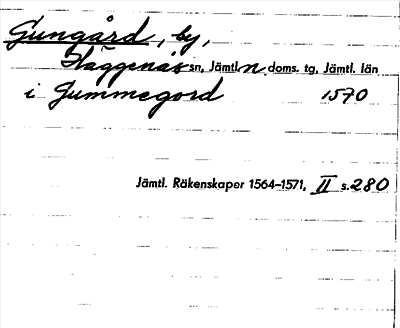 Gungård, by,
Häggenås sn, Jämtl. n. doms. tg, Jämtl. län
i Gummegord 1570
Jämtl. Räkenskaper 1564-1571, II s. 280